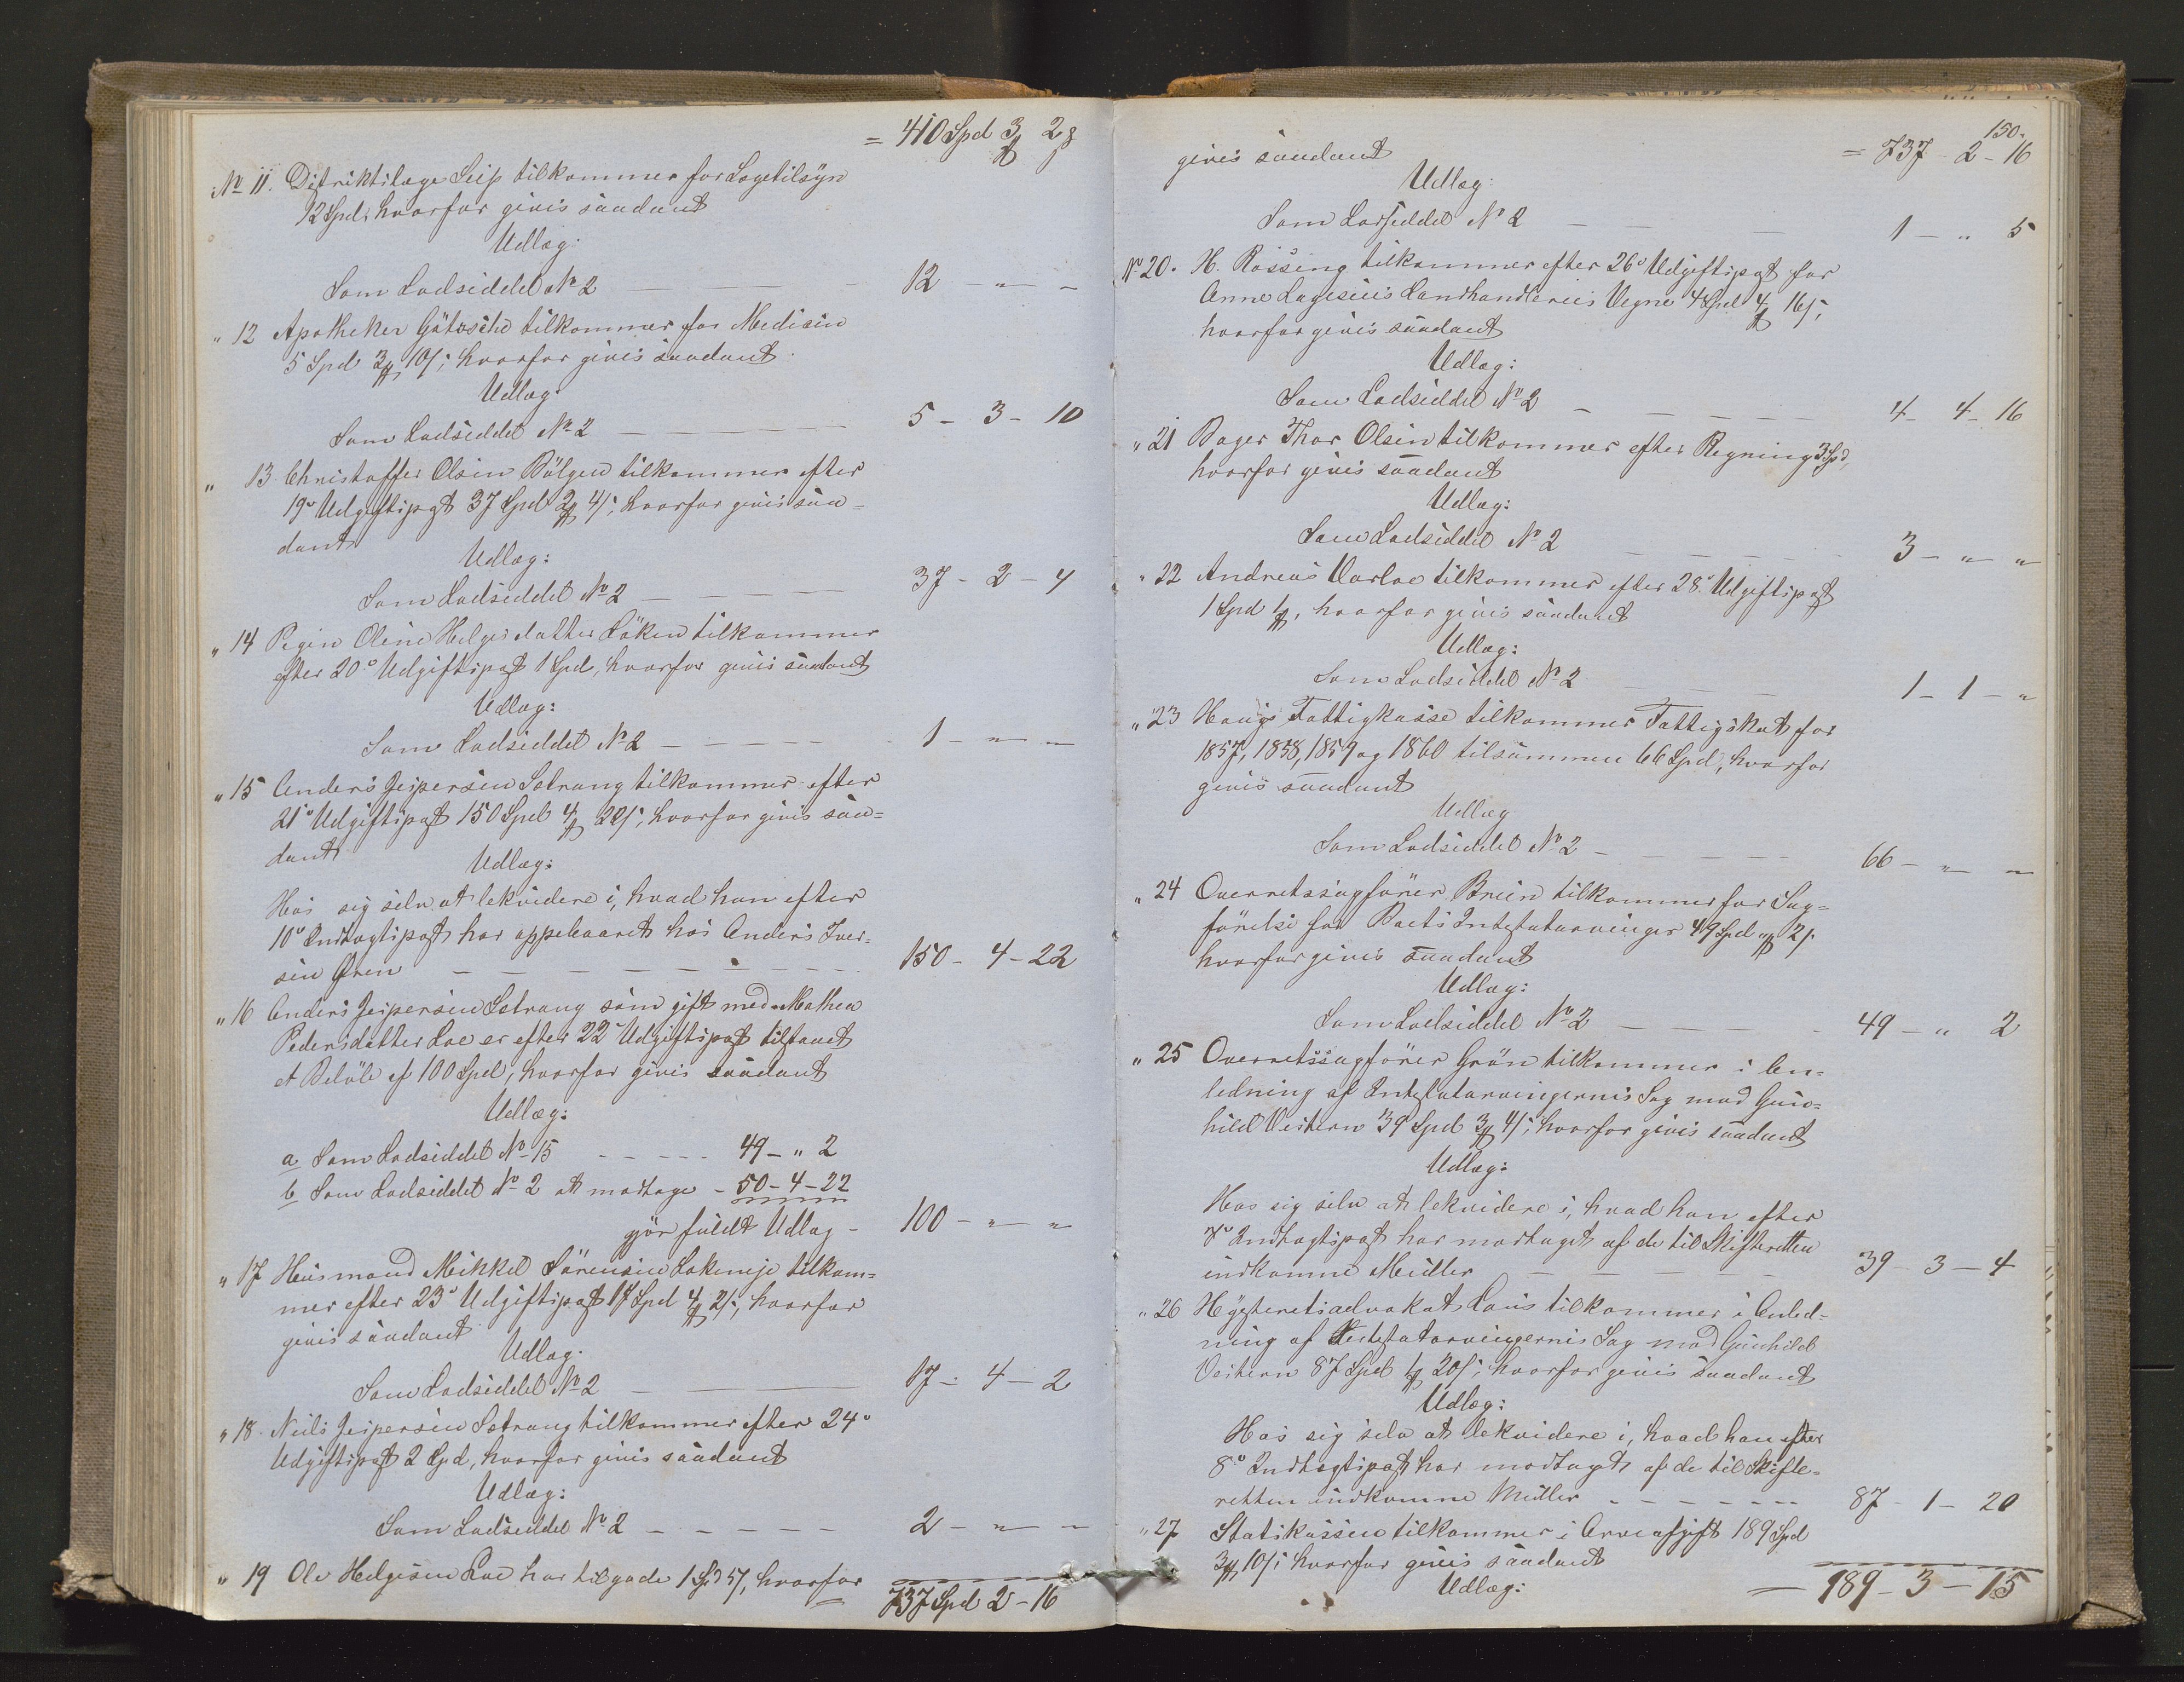 = 410 Spd 3 ₰ 2 ß
No 11. Distriktslæge Seip tilkommer for Lægetilsyn
12 Spd; hvorfor gives saadant
Udlæg:
Som Lodseddel No 2 — — — 12 - " -
" 12 Apotheker Götzsche tilkommer for Medicin
5 Spd 3 ₰ 10 ß; hvorfor gives saadant
Udlæg
Som Lodseddel No 2 — — — 5 - 3 - 10
" 13 Christoffer Olsen Bölgen tilkommer efter
19o Udgiftspost 37 Spd 2 ₰ 4 ß; hvorfor gives saa=
dant
Udlæg:
Som Lodseddel No 2 — — — 37 - 2 - 4
" 14 Pigen Oline Helgesdatter Löken tilkommer
efter 20o Udgiftspost 1 Spd, hvorfor gives saadant
Udlæg:
Som Lodseddel No 2 — — — 1 - " - "
" 15 Anders Jespersen Sætrang tilkommer efter
21o Udgiftspost 150 Spd 4 ₰ 22 ß; hvorfor gives saa=
dant
Udlæg:
Hos sig selv at lekvidere i, hvad han efter
10o Indtægtspost har oppebaaret hos Anders Iver=
sen Øren — — — 150 - 4 - 22
" 16 Anders Jespersen Sætrang som gift med Mathea
Pedersdatter Loe er efter 22o Udgiftspost tilstaaet
et Belöb af 100 Spd, hvorfor gives saadant
Udlæg:
a Som Lodseddel No 15 - - - - - 49 - " 2
b Som Lodseddel No 2 at modtage - 50 - 4 - 22
gjör fuldt Udlæg - 100 - " - "
" 17 Huusmand Mikkel Sörensen Lokeneje tilkom=
mer efter 23o Udgiftspost 17 Spd 4 ₰ 2 ß; hvorfor
gives saadant
Udlæg.
Som Lodseddel No 2 — — — 17 - 4 - 2
" 18. Neils Jespersen Sætrang tilkommer efter 24o
Udgiftspost 2 Spd, hvorfor gives saadant
Udlæg:
Som Lodseddel No 2 — — — 2 - " -
" 19 Ole Helgesen Loe har tilgode 1 Spd 5 ß, hvorfor
737 Spd 2 - 16
150.
gives saadant = 737 - 2 - 16
Udlæg:
Som Lodseddel No 2 — — — 1 - " 5
No 20. H. Rössing tilkommer efter 26o Udgiftspost for
Anne Lagesens Landhandleries Vegne 4 Spd 4 ₰ 16 ß;
hvorfor gives saadant
Udlæg:
Som Lodseddel No 2 — — — 4 - 4 - 16
" 21 Bager Thor Olsen tilkommer efter Regning 3 Spd,
hvorfor gives saadant
Udlæg:
Som Lodseddel No 2 — — — 3 - " - "
" 22 Andreas Varloe tilkommer efter 28o Udgiftspost
1 Spd 1 ₰, hvorfor gives saadant
Udlæg:
Som Lodseddel No 2 — — — 1 - 1 - "
" 23 Hougs Fattigkasse tilkommer Fattigskat for
1857, 1858, 1859 og 1860 tilsammen 66 Spd, hvorfor
gives saadant
Udlæg
Som Lodseddel No 2 — — — 66 - " - "
" 24 Overretssagförer Brun tilkommer for Sag=
förelse for Boets Intestatarvinger 49 Spd " ₰ 2 ß
hvorfor gives saadant
Udlæg:
Som Lodseddel No 2 — — — 49 - " 2
" 25 Overretssagförer Grön tilkommer i An=
ledning af Intestatarvingernes Sag mod Gun=
hild Vestern 39 Spd 3 ₰ 4 ß; hvorfor gives saadant
Udlæg:
Hos sig selv at lekvidere i, hvad han efter
7o Indtægtspost har modtaget af de til Skifteretten
indkomne Midler — — — 39 - 3 - 4
" 26 Høyesteretsadvokat Lous tilkommer i Anled=
ning af Intestatarvingernes Sag mod Gunhild
Vestern 87 Spd 1 ₰ 20 ß; hvorfor gives saadant
Udlæg:
Hos sig selv at lekvidere i, hvad han efter
8o Indtægtspost har modtaget af de til Skifte=
retten indkomne Midler - - - - 87 - 1 - 20
" 27 Statskassen tilkommer i Arveafgift 189 Spd
3 ₰ 10 ß; hvorfor gives saadant
Udlæg: = 189 - 3 - 15